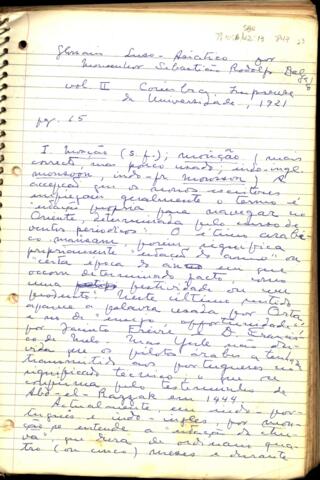 Glossário Luso-Asiático por
Monsenhor Sebastião Rodolfo Dalgado
vol. II Coimbra, Imprensa
da Universidade, 1921
pg. 65
I. Monção (s. f.); moução (mais
correcto, mas pouco usado; indo-ingl.
monsoon, indo-fr. mousson). A
acepção em que os nossos escritores
empregam geralmente o termo é
"estação própria para navegar no
Oriente, determinada pelo curso de
ventos periódicos". O étimo arábi-
co mausam, porém, significa
propriamente "estação do anno" ou
"certa época do anno em que
ocorre determinado facto como
uma festividade ou um
producto". Neste último sentido
aparece a palavra usada por
e no de "ensejo, oportunidade"
por Jacinto Freire e D. Francis-
co de Melo. Mas Yule não du-
vida que os pilotos árabes a tenham
transmitido aos portugueses no
significado técnico, o que se
confirma pelo testemunho de
Abd-el-Razzak em 1444.
Actualmente, em indo-por-
tuguês e indo-inglês, por mon-
ção se entende a "estação da chu-
va" que dura de ordinário qua-
tro (ou cinco) meses e durante